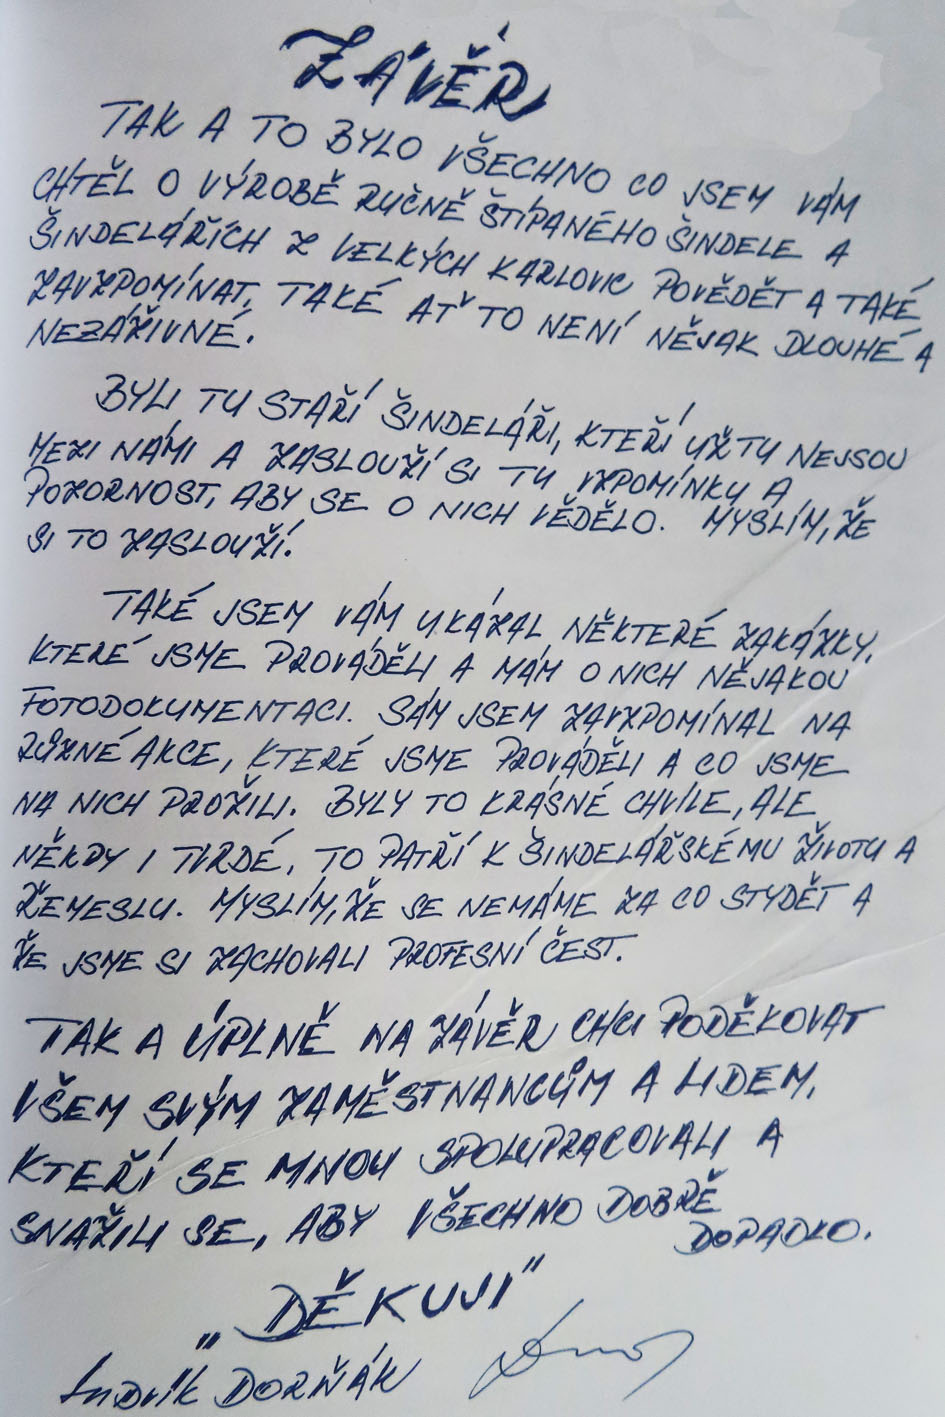 ZÁVĚR
TAK A TO BYLO VŠECHNO CO JSEM VÁM
CHTĚL O VÝROBĚ RUČNĚ ŠTÍPANÉHO ŠINDELE A
ŠINDELÁŘÍCH Z VELKÝCH KARLOVIC POVĚDĚT A TAKÉ
ZAVZPOMÍNAT, TAKÉ AŤ TO NENÍ NĚJAK DLOUHÉ A
NEZÁŽIVNÉ.
BYLI TU STAŘÍ ŠINDELÁŘI, KTEŘÍ UŽ TU NEJSOU
MEZI NÁMI A ZASLOUŽÍ SI TU VZPOMÍNKU A
POZORNOST, ABY SE O NICH VĚDĚLO. MYSLÍM, ŽE
SI TO ZASLOUŽÍ.
TAKÉ JSEM VÁM UKÁZAL NĚKTERÉ ZAKÁZKY,
KTERÉ JSME PROVÁDĚLI A MÁM O NICH NĚJAKOU
FOTODOKUMENTACI. SÁM JSEM ZAVZPOMÍNAL NA
RŮZNÉ AKCE, KTERÉ JSME PROVÁDĚLI A CO JSME
NA NICH PROŽILI. BYLY TO KRÁSNÉ CHVÍLE, ALE
NĚKDY I TVRDÉ, TO PATŘÍ K ŠINDELÁŘSKÉMU ŽIVOTU A
ŘEMESLU. MYSLÍM, ŽE SE NEMÁME ZA CO STYDĚT A
ŽE JSME SI ZACHOVALI PROFESNÍ ČEST.
TAK A ÚPLNĚ NA ZÁVĚR CHCI PODĚKOVAT
VŠEM SVÝM ZAMĚSTNANCŮM A LIDEM,
KTEŘÍ SE MNOU SPOLUPRACOVALI A
SNAŽILI SE, ABY VŠECHNO DOBŘE
DOPADLO.
„DĚKUJI"
LUDVÍK DORŇÁK